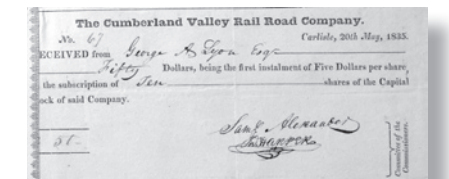 The Cumberland Valley Rail Road Company.
No. 67 Carlisle, 20th May, 1835.
ECEIVED from George A Lyon Esqr
Fifty Dollars, being the first instalment of Five Dollars per share,
the subscription of Ten shares of the Capital
ock of said Company.
Saml Alexander
Committee of the
Commissioners.